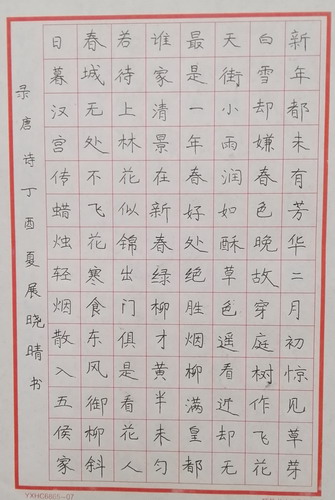 新年都未有芳华二月初惊见草芽
白雪却嫌春色晚故穿庭树作飞花
天街小雨润如酥草色遥看近却无
最是一年春好处绝胜烟柳满皇都
谁家清景在新春绿柳才黄半未匀
若待上林花似锦出门俱是看花人
春城无处不飞花寒食东风御柳斜
日暮汉宫传蜡烛轻烟散入五侯家
录唐诗丁酉夏展晓晴书